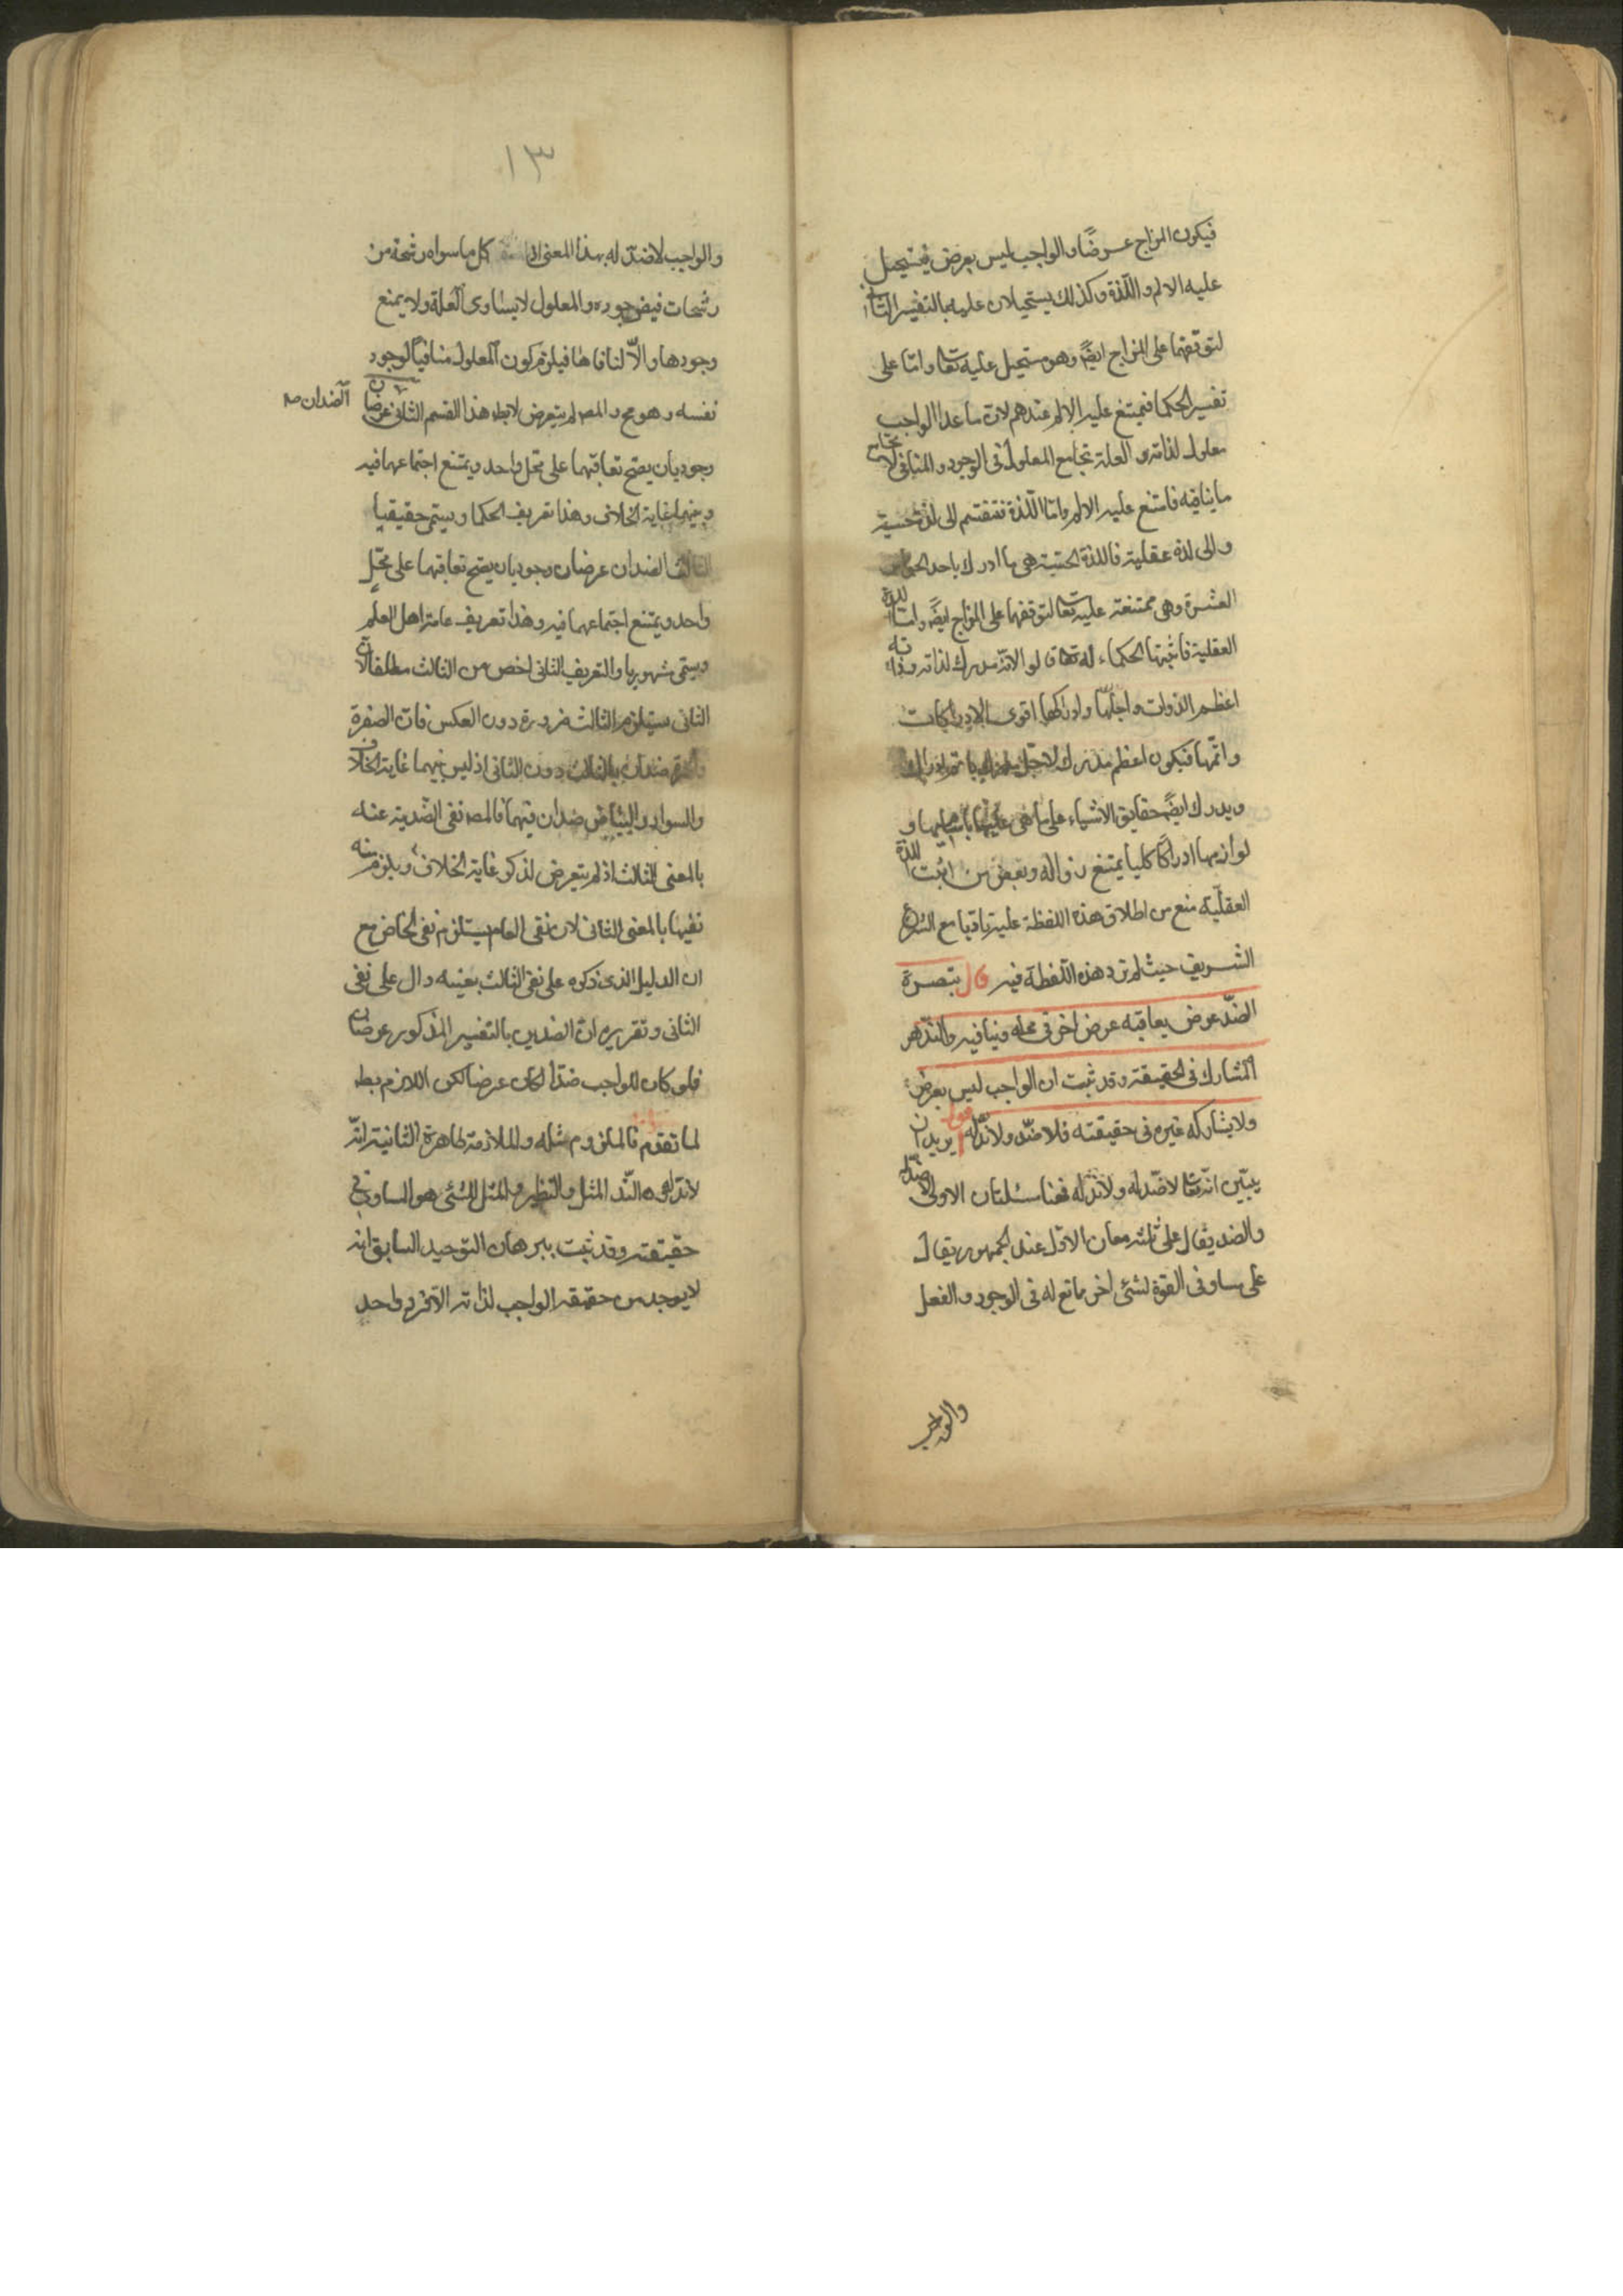 فيكون المزاج عرضًا والواجب ليس بعرض فيستحيل
عليه الالم واللذة وكذلك يستحيلان عليه بالتفسير الثانى
لتوقفهما على المزاج ايضً وهو مستحيل عليه تعا وامّا على
تفسير الحكما فيمتنع عليه الالم عندهم لان ما عدا الواجب
معلول لذاته والعلة تجامع المعلول فى الوجود والمنافى لا يجامع
ما ينافيه فامتنع عليه الالم وامّا اللّذة فتنقسم الى لذة حسية
والى لذة عقلية فاللذة الحسّية هى ما ادرك باحد الحواس
العشرة وهى ممتنعة عليه تعا لتوقفها على المزاج ايضًا وامّا اللذة
العقلية فاثبتها الحكماء له تعا قالوا لانّه مدرك لذاته وذاته
اعظم الذوات واجلّها وادراكها اقوى الادراكات
واتمّها فيكون اعظم مدرك لاجل مدرك باتم ادراك
ويدرك ايضً حقايق الاشياء على ما هى عليها باسبابها و
لوازمها ادراكًا كليا يمتنع زواله وبعض من اثبت اللذة
العقليّة منع من اطلاق هذه اللفظة عليه تادّبا مع الشرع
الشريف حيث لم ترد هذه اللّفظة فيه قال تبصرة
الضدّ عرض يعاقبه عرض اخر فى محله وينافيه والندّ هو
المشارك فى الحقيقة وقد ثبت ان الواجب ليس بعرض
ولا يشاركه غيره فى حقيقته فلا ضدّ ولا ندّ له اقول يريد ان
يبيّن انّه تعا لا ضدّ له ولا ندّ له فهنا مسئلتان الاولى لا ضدّ له
والضد يقال على ثلثة معان الاوّل عند الجمهور يقال
على مساو فى القوة لشئ اخر مانع له فى الوجود والفعل
والواجب
١٣
والواجب لا ضدّ له بهذا المعنى اذ كل ما سواه رشحة من
رشحات فيض جوده والمعلول لا يساوى العلة ولا يمنع
وجودها والاّ لنافاها فيلزم كون المعلول منافيًا لوجود
نفسه وهو مح والمصـ لم يتعرض لابطـ هذا القسم الثانى عرضان
الضدان صـ
وجوديان يصح تعاقبهما على محل واحد ويمتنع اجتماعهما فيه
وبينهما غاية الخلاف وهذا تعريف الحكما ويسمّى حقيقيا
الثالث الضدان عرضان وجوديان يصح تعاقبهما على محلّ
واحد ويمتنع اجتماعهما فيه وهذا تعريف عامة اهل العلم
ويسمّى مشهوريا والتعريف الثانى اخص من الثالث مطلقا لان
الثانى يستلزم الثالث ضرورة دون العكس فان الصفرة
والحمرة ضدان بالثالث دون الثانى اذ ليس بينهما غاية الخلاف
والسواد والبياض ضدان فيهما فالمصـ نفى الضّدية عنه
بالمعنى الثالث اذ لم يتعرض لذكر غاية الخلاف ويلزم منه
نفيها بالمعنى الثانى لان نفى العام يستلزم نفى الخاص مع
ان الدليل الذى ذكره على نفى الثالث بعينه دال على نفى
الثانى وتقريره ان الضدين بالتفسير المذكور عرضان
فلو كان للواجب ضدّا لكان عرضا لكن اللازم بطـ
لما تقدم فالملزوم مثله والملازمة ظاهرة الثانية انّه
لا ندّ له والنّد المثل والنظير والمثل للشئ هو المساوى فى
حقيقته وقد ثبت ببرهان التوحيد السابق انه
لا يوجد من حقيقة الواجب لذاته الا فرد واحد